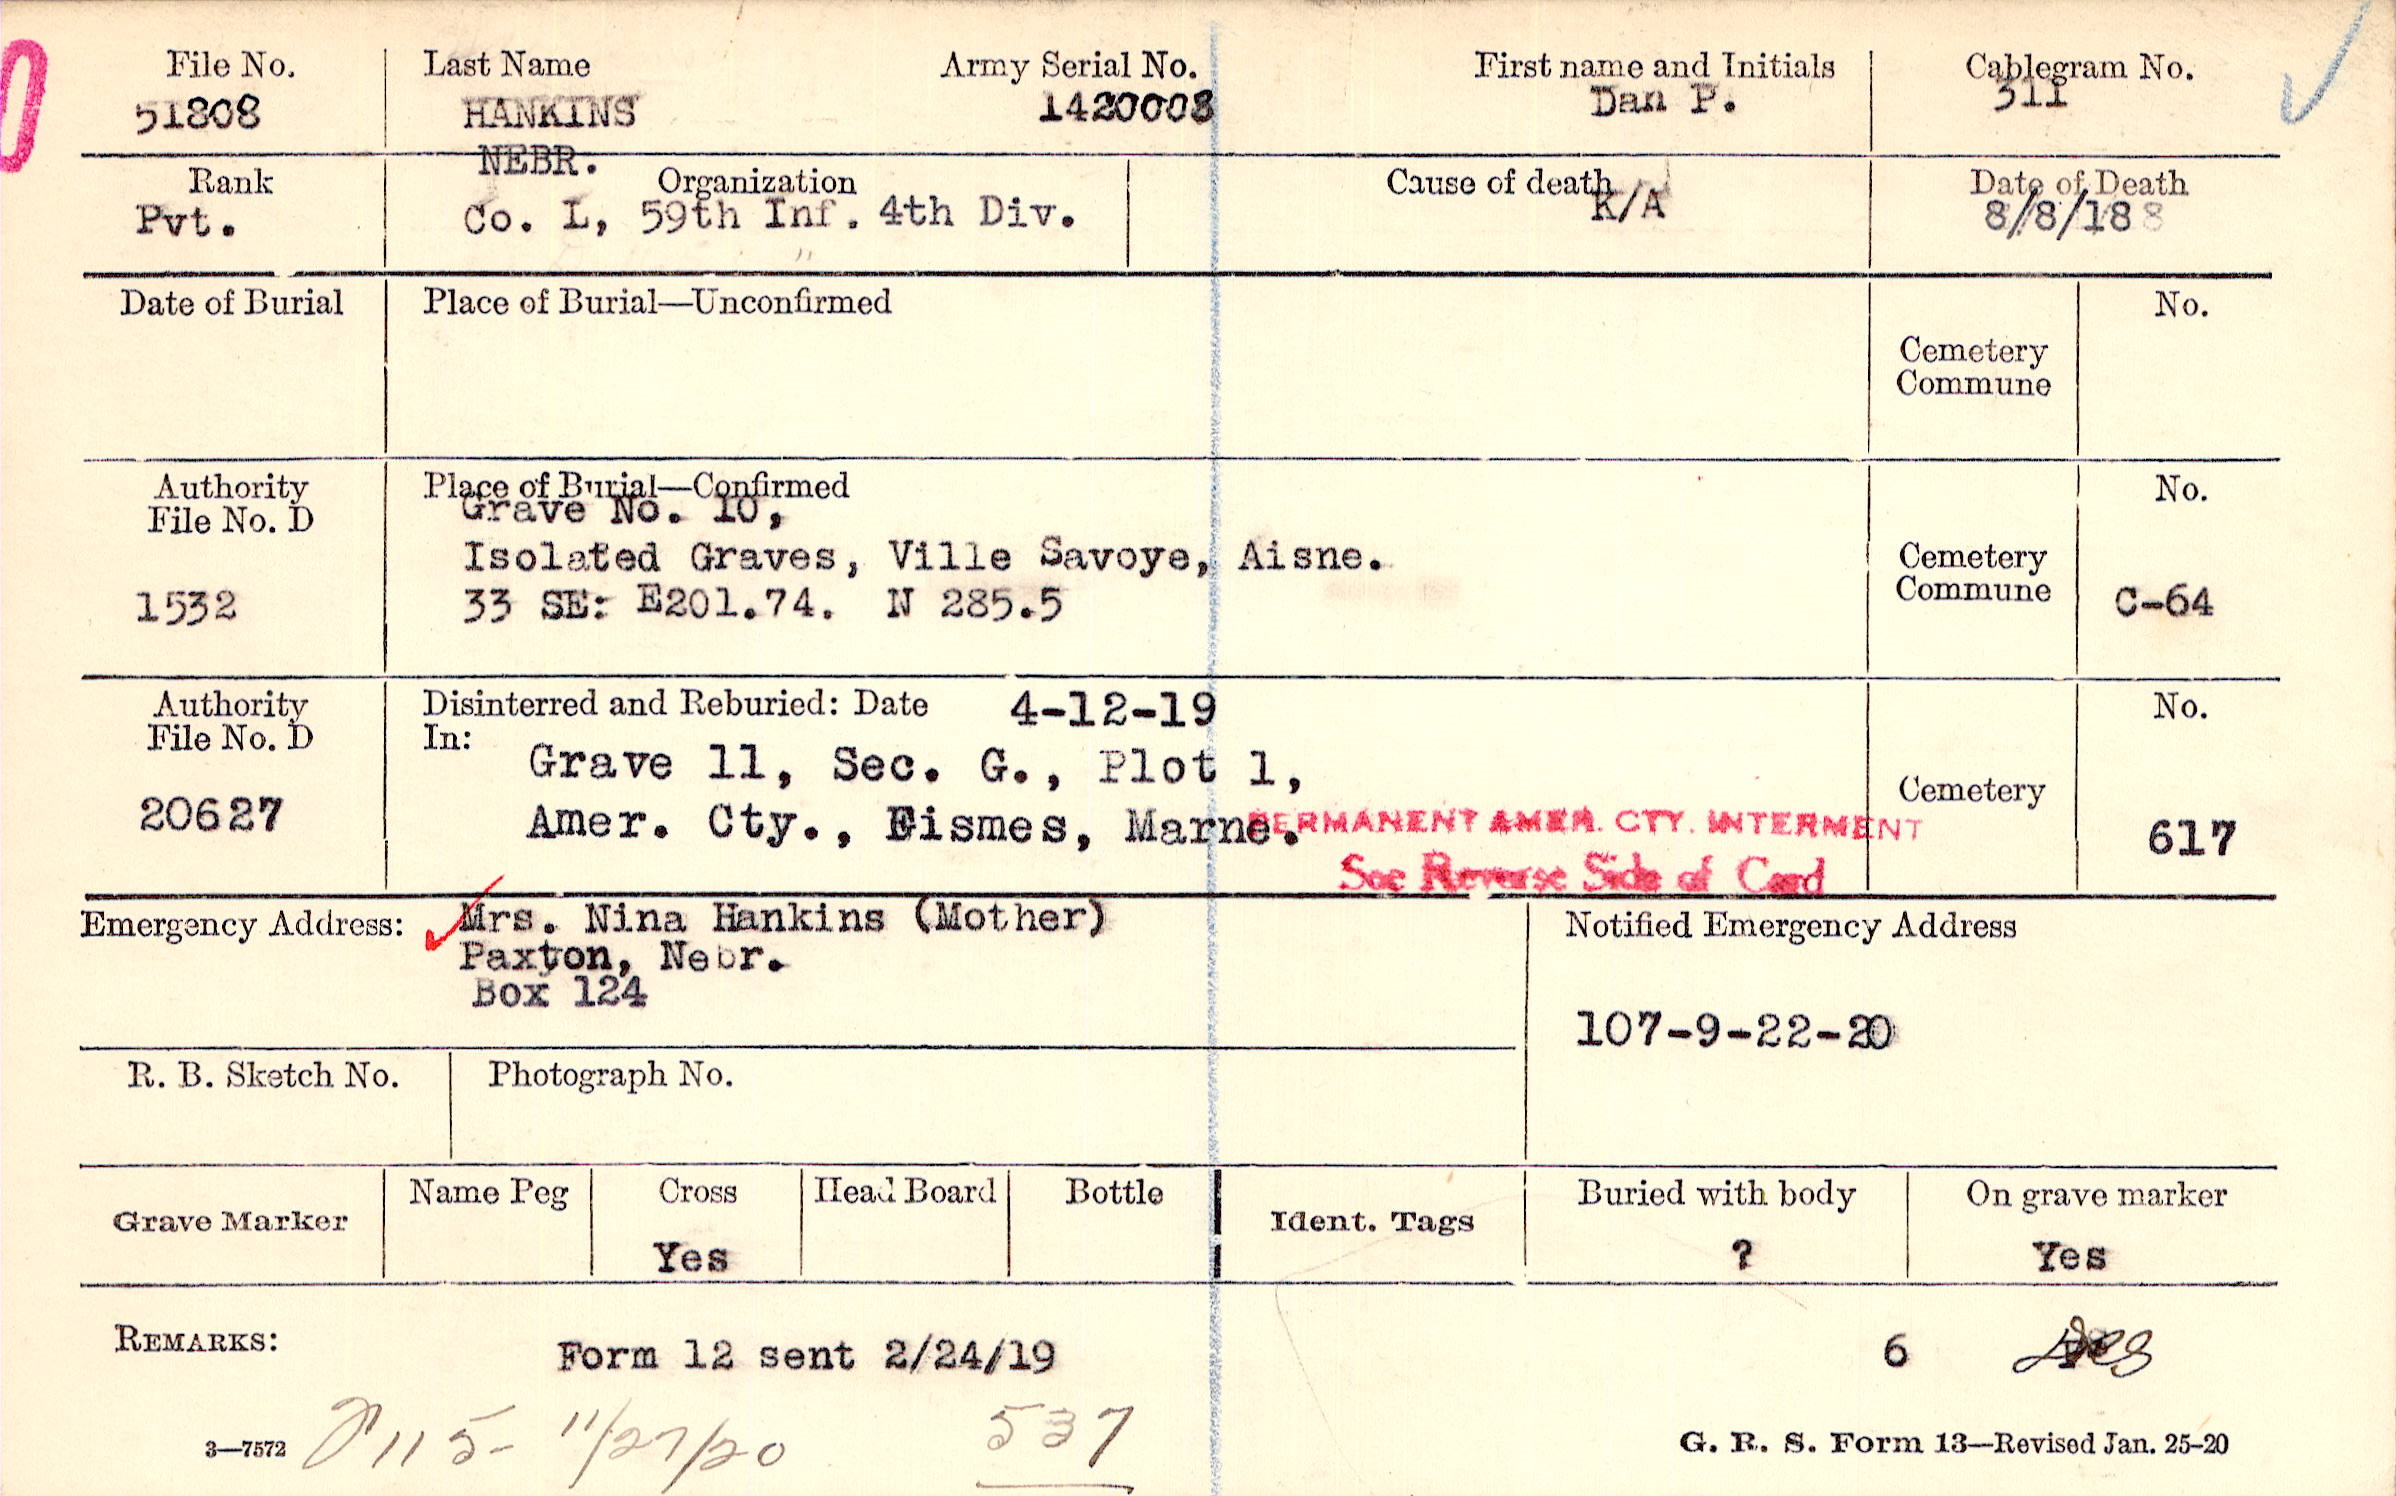 File No.
51808
Last Name
HANKINS
NEBR.
Army Serial No.
1420008
First name and Initials
Dan P.
Cablegram No.
311
Rank
Pvt.
Organization
Co. L, 59th Inf. 4th Div.
Cause of death
K/A
Date of Death
8/8/18
Date of Burial
Place of Burial—Unconfirmed
Cemetery
Commune
No.
Authority
File No. D
1532
Place of Burial—Confirmed
Grave No. 10,
Isolated Graves, Ville Savoye, Aisne.
33 SE: E201.74. N 285.5
Cemetery
Commune
No.
C-64
Authority
File No. D
20627
Disinterred and Reburied: Date 4-12-19
In:
Grave 11, Sec. G., Plot 1,
Amer. Cty., Fismes, Marne.
PERMANENT AMER. CTY. INTERMENT
See Reverse Side of Card
Cemetery
No.
617
Emergency Address:
Mrs. Nina Hankins (Mother)
Paxton, Nebr.
Box 124
Notified Emergency Address
107-9-22-20
R. B. Sketch No.
Photograph No.
Grave Marker
Name Peg
Cross
Yes
Head Board
Bottle
Ident. Tags
Buried with body
?
On grave marker
Yes
REMARKS:
Form 12 sent 2/24/19
6
3—7572
115- 11/27/20
537
G. R. S. Form 13—Revised Jan. 25-20